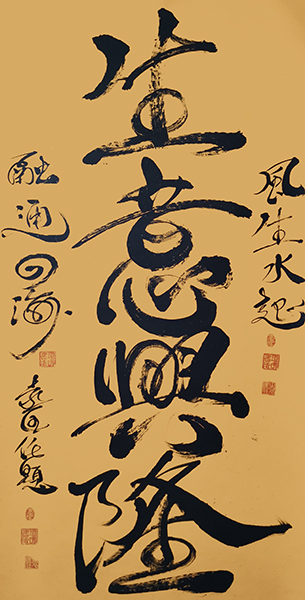 風生水起
生意興隆
融通四海